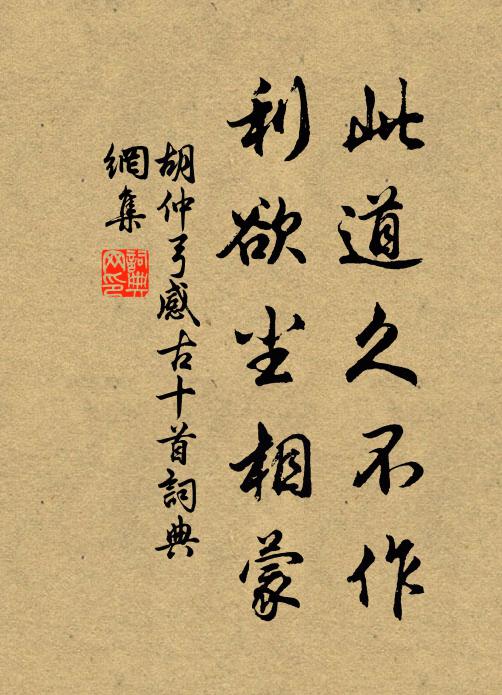 此道久不作
利欲坐相蒙
胡仲弓感古十首詞典
網集
詞典
网印